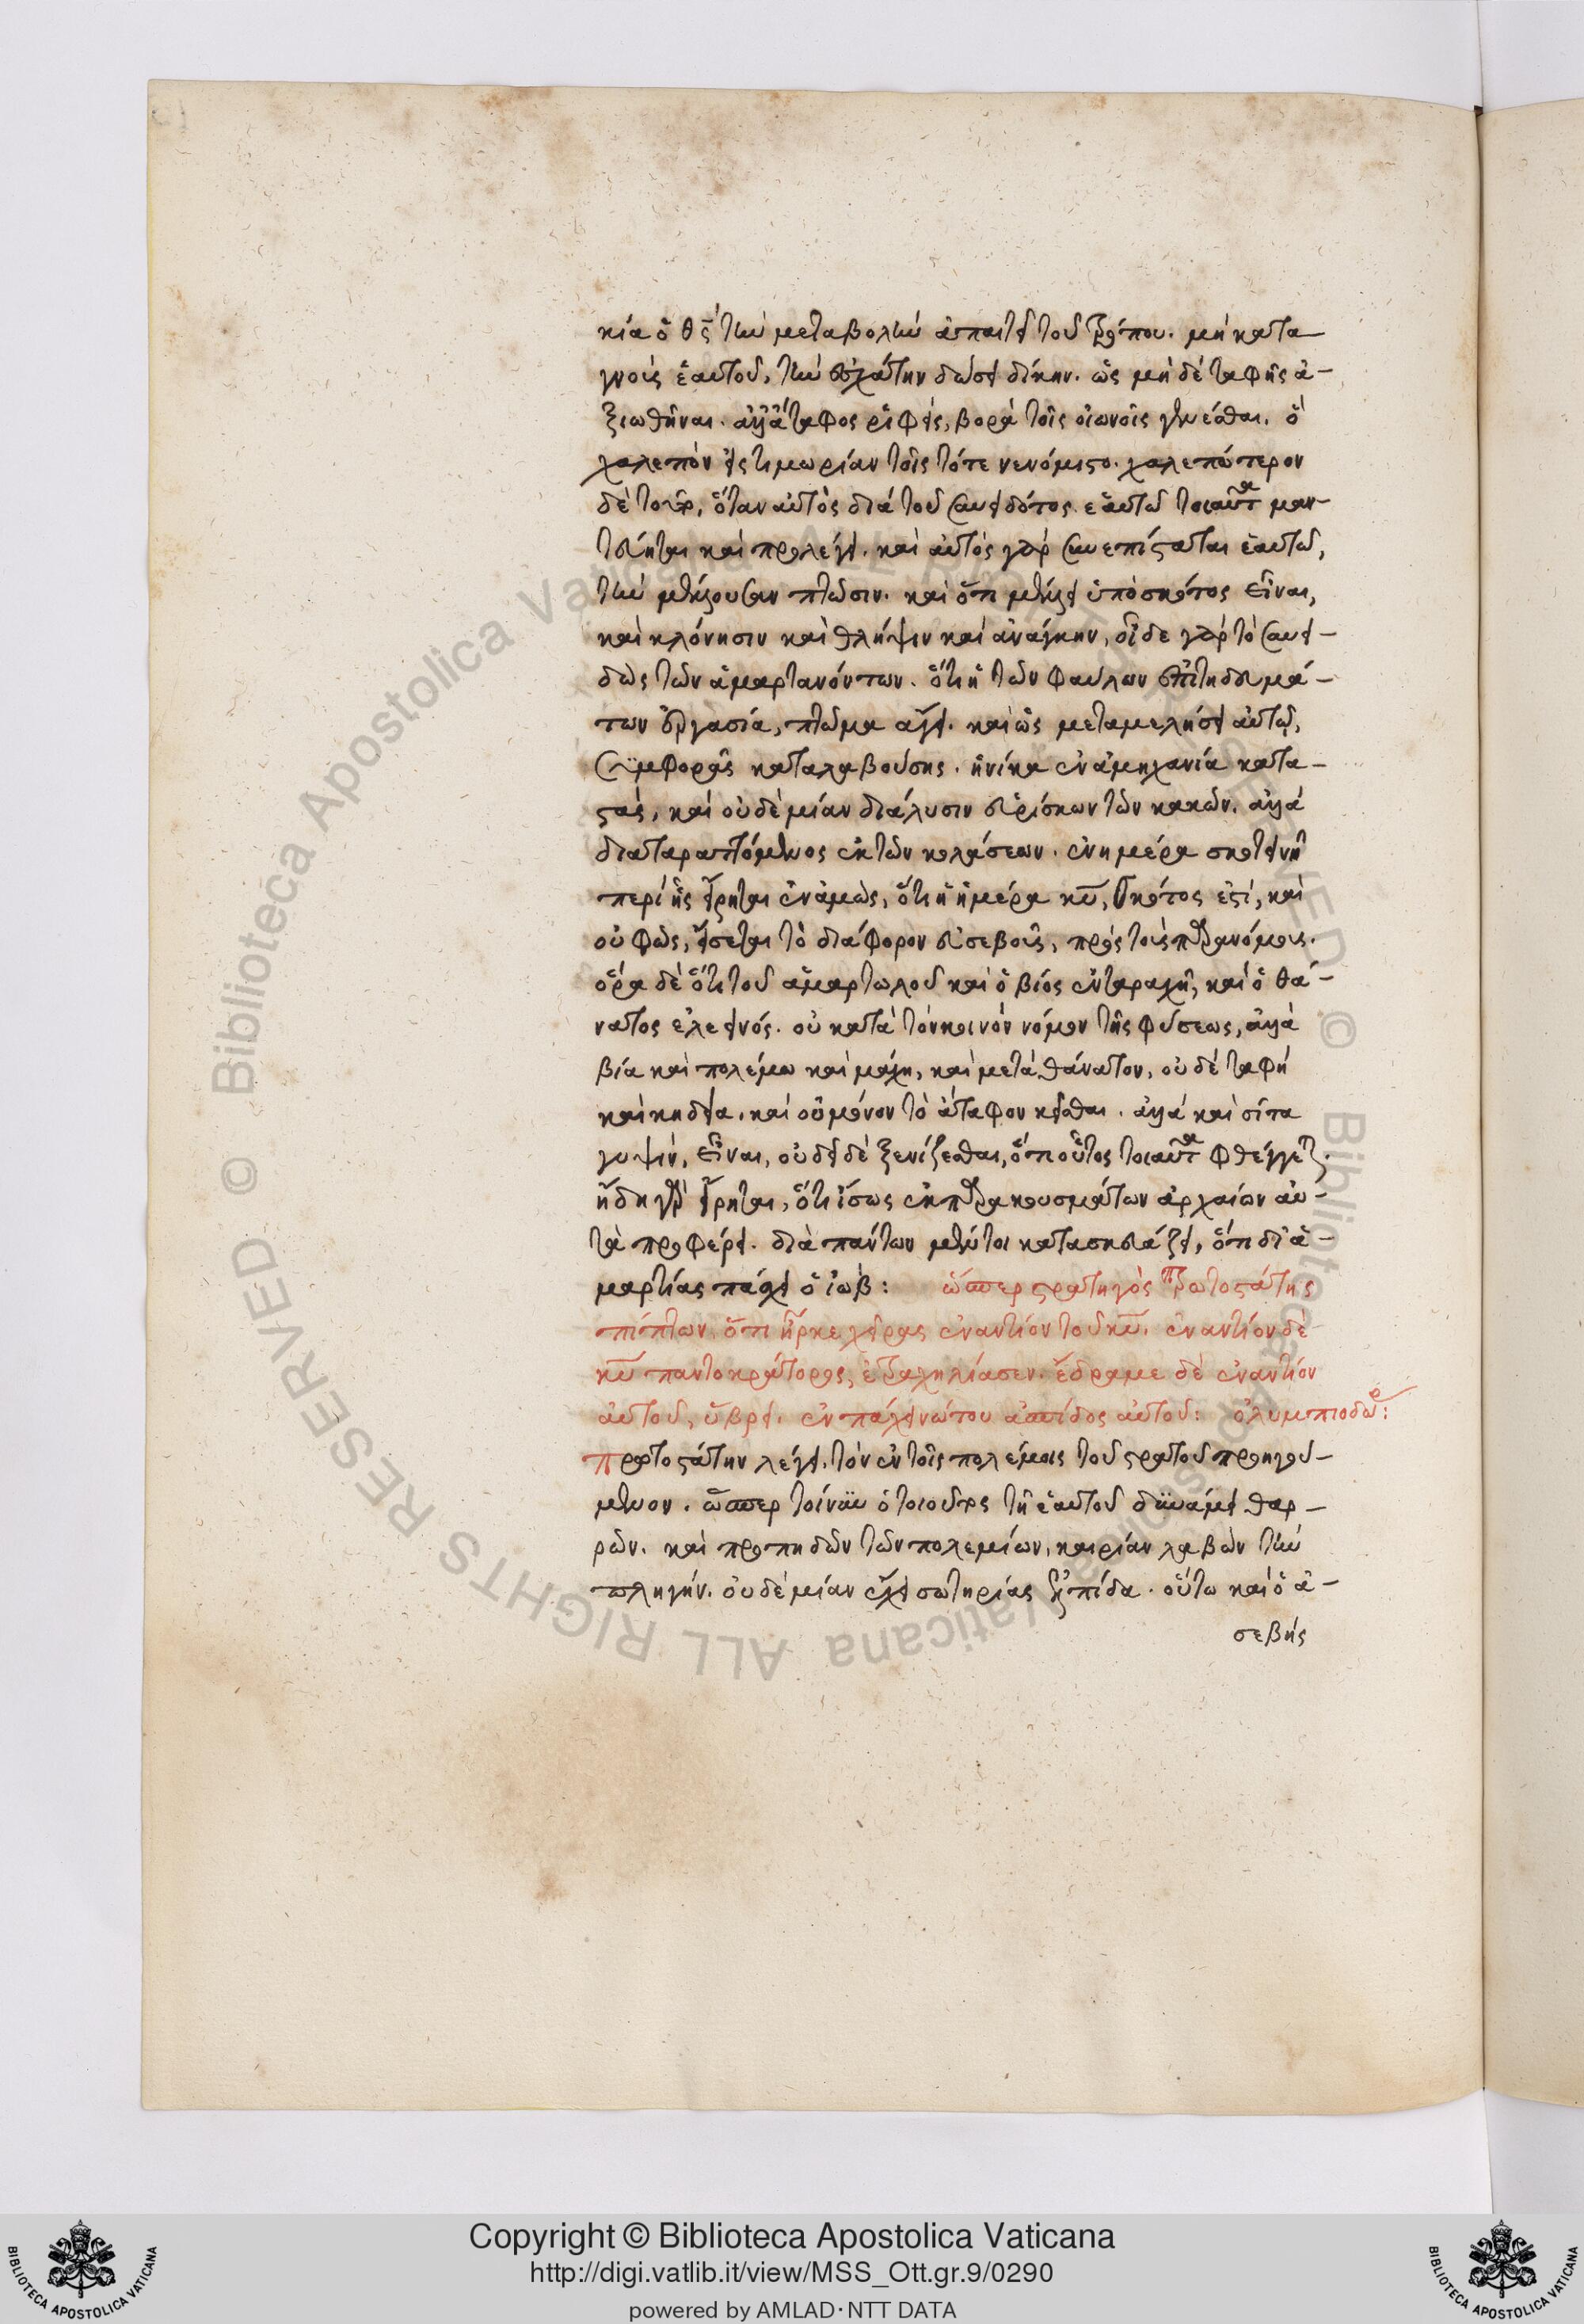 κία ὁ θς τὴν μεταβολὴν ἀπαιτεῖ τοῦ τρόπου. μὴ κατα
γνοὺς ἑαυτοῦ, τὴν ἐσχάτην δώσει δίκην. ὡς μὴ δὲ ταφῆς ἀ-
ξιωθῆναι. ἀλλ' ἄταφος ῥιφεὶς, βορὰ τοῖς οἰωνοῖς γενέσθαι. ὃ
χαλεπὸν εἰς τιμωρίαν τοῖς τότε νενόμιστο. χαλεπώτερον
δὲ τοῦτο, ὅταν αὐτὸς διὰ τοῦ συνειδότος ἑαυτῷ τοιαῦτα μαν-
τεύηται καὶ προλέγει. καὶ αὐτὸς γὰρ συνεπίσταται ἑαυτῷ,
τὴν μένουσαν πτῶσιν. καὶ ὅτι μέλλει ὑπὸ σκότος εἶναι,
καὶ κλόνησιν καὶ θλήψιν καὶ ἀνάγκην, οἶδε γὰρ τὸ συνει-
δὼς τῶν ἁμαρτανόντων. ὅτι ἡ τῶν φαύλων ἐπιτηδευμά-
των ἐργασία, πτῶμα ἄγει. καὶ ὡς μεταμελήσει αὐτῷ,
συμφορᾶς καταλαβούσης. ἡνίκα ἐν ἀμηχανία κατα-
στὰς, καὶ οὐδὲ μίαν διάλυσιν εὑρίσκων τῶν κακῶν. ἀλλὰ
διαταραττόμενος ἐκ τῶν κολάσεων. ἐν ημέρα σκοτεινῆ
περὶ ἧς εἴρηται ἐν ἀμὼς, ὅτι ἡ ἡμέρα κυ, σκότος ἐστὶ, καὶ
οὐ φῶς, εἴσεται τὸ διάφορον εὐσεβοῦς, πρὸς τοὺς παρανόμους.
ὅρα δὲ ὅτι τοῦ ἁμαρτωλοῦ καὶ ὁ βίος ἐν ταραχῆ, καὶ ὁ θά-
νατος ἐλεεινός. οὐ κατὰ τὸν κοινὸν νόμον τῆς φύσεως, ἀλλὰ
βία καὶ πολέμω καὶ μάχη, καὶ μετὰ θάνατον, οὐδὲ ταφή
καὶ κηδεία. καὶ οὐ μόνον τὸ ἄταφον κεῖσθαι. ἀλλὰ καὶ σίτα
γυψὶν, εἶναι, οὐ δεῖ δὲ ξενίζεσθαι, ὅτι οὗτος τοιαῦτα φθέγγεται.
ἤδη γὰρ εἴρηται, ὅτι ἴσως ἐκ παρακουσμάτων ἀρχαίων αὐ-
τὰ προφέρει. διὰ πάντων μέντοι κατασκευάζει, ὅτι δι' ἁ-
μαρτίας πάσχει ὁ ἰώβ: ὥσπερ στρατηγὸς πρωτοστάτης
πίπτων. ὅτι ἦρκε χεῖρας ἐναντίον τοῦ κυ. ἐναντίον δὲ
κυ παντοκράτορος, ἐτραχηλίασεν. ἔδραμε δὲ ἐναντίον
αὐτοῦ, ὕβρει. ἐν πάχει νώτου ἀσπίδος αὐτοῦ: ὀλυμπιοδώρ:
πρωτοστάτην λέγει, τὸν ἐν τοῖς πολέμοις τοῦ στρατοῦ προηγού-
μενον. ὥσπερ τοίνυν ὁ τοιοῦτος τῆ ἑαυτοῦ δυνάμει θαρ-
ρῶν. καὶ προπηδῶν τῶν πολεμίων, καιρίαν λαβὼν τὴν
πληγήν. οὐδὲ μίαν ἔχει σωτηρίας ἐλπίδα. οὕτω καὶ ὁ ἀ-
σεβὴς
Copyright © Biblioteca Apostolica Vaticana
http://digi.vatlib.it/view/MSS_Ott.gr.9/0290
powered by AMLAD·NTT DATA